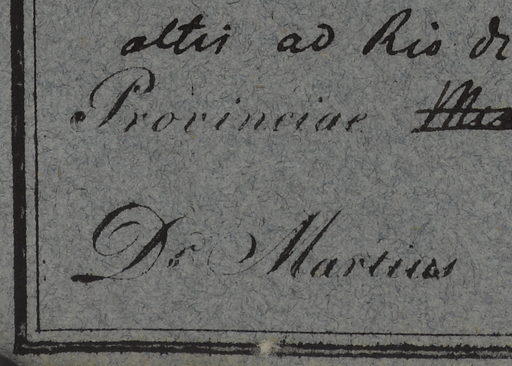 altis ad Rio de
Provinciae
Dr Martius